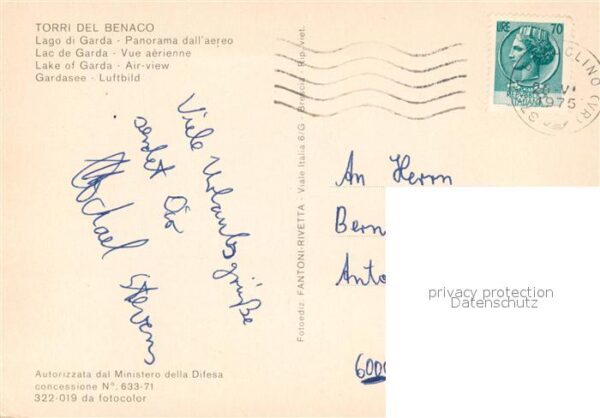 TORRI DEL BENACO
Lago di Garda - Panorama dall'aereo
Lac de Garda - Vue aérienne
Lake of Garda - Air-view
Gardasee - Luftbild
Viele Urlaubsgrüße
sendet Dir
Michael Stevens
Autorizzata dal Ministero della Difesa
concessione N°. 633-71
322-019 da fotocolor
Fotoediz. FANTONI-RIVETTA - Viale Italia 6/G - Brescia - Rip. viet.
LIRE 70
26 VI
1975
(VR)
An Herrn
Bern
Anto
6000
privacy protection
Datenschutz